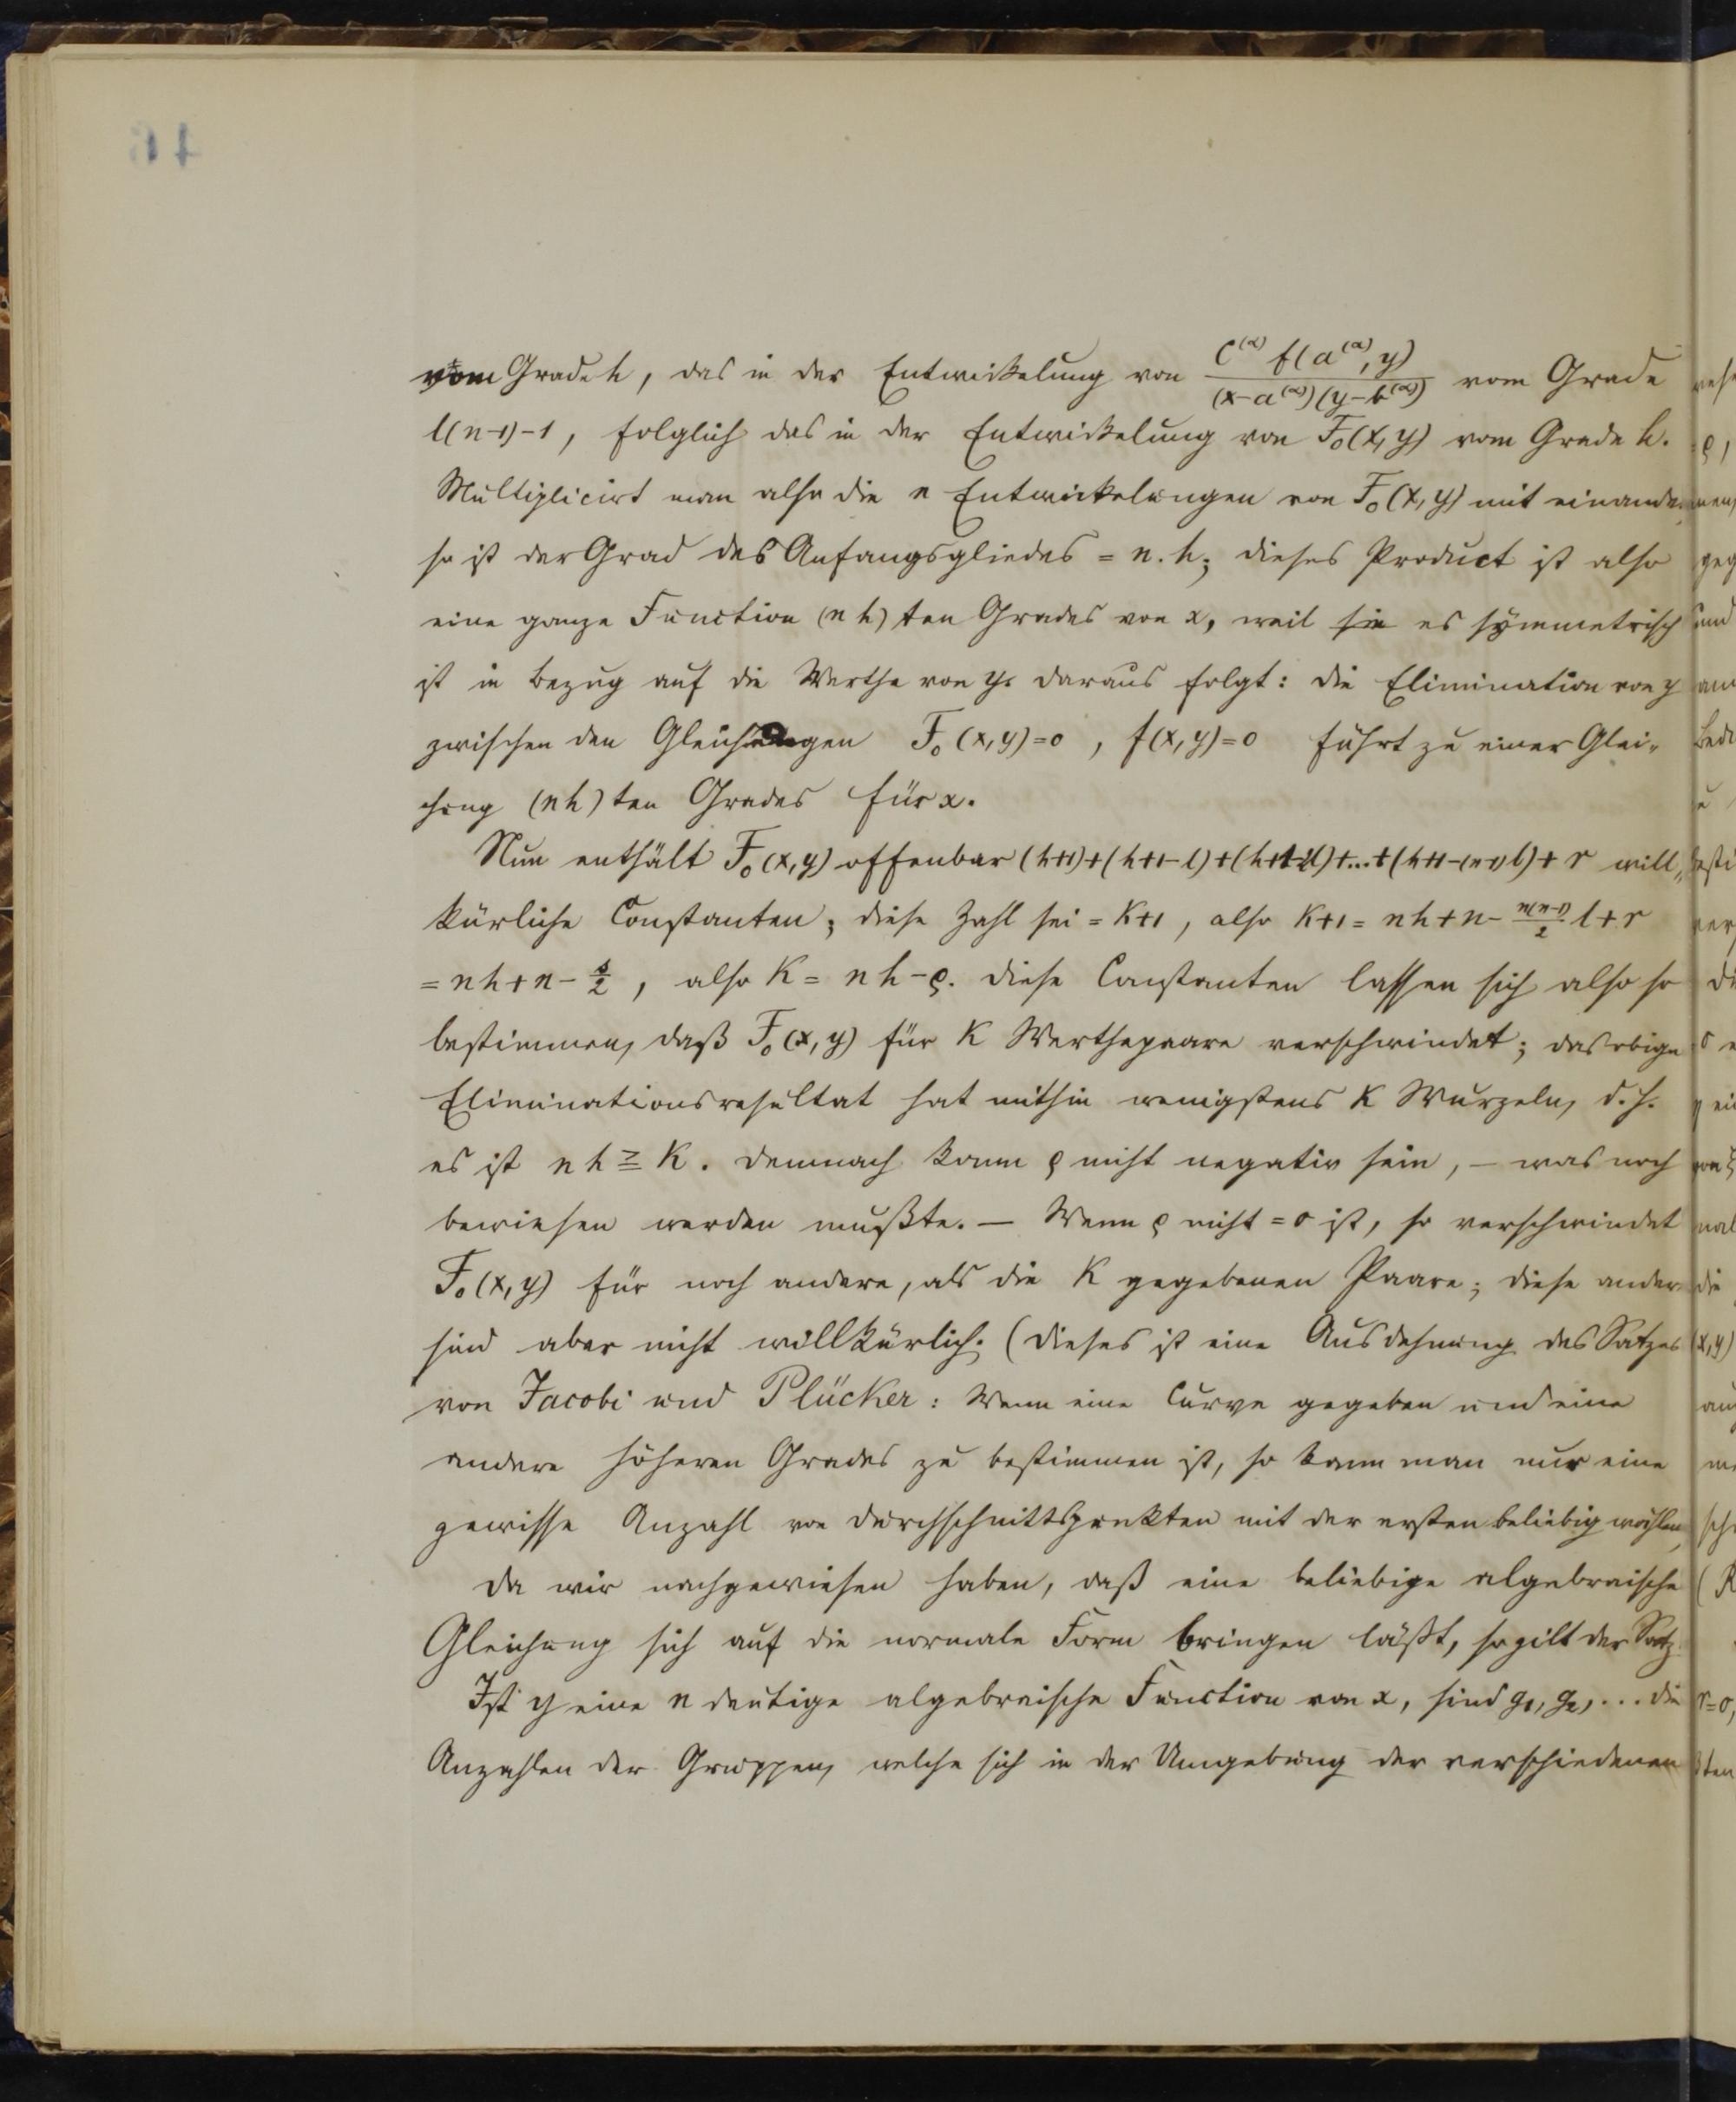 vom Grade h, das in der Entwickelung von C^(α) f(a^(α), y) / (x-a^(α))(y-b^(α)) vom Grade
l(n-1)-1, folglich das in der Entwickelung von F₀(x,y) vom Grade h.
Multiplicirt man also die n Entwickelungen von F₀(x,y) mit einander,
so ist der Grad des Anfangsgliedes = n.h; dieses Product ist also
eine ganze Function (nh)ten Grades von x, weil sie es symmetrisch
ist in Bezug auf die Werthe von y. Daraus folgt: die Elimination von y
zwischen den Gleichungen F₀(x,y)=0, f(x,y)=0 führt zu einer Glei-
chung (nh)ten Grades für x.
Nun enthält F₀(x,y) offenbar (h+1)+(h+1-l)+(h+1-2l)+...+(h+1-(n-1)l)+r will-
kürliche Constanten; diese Zahl sei = K+1, also K+1 = nh+n- n(n-1)/2 l+r
= nh+n- s/2, also K = nh-ρ. Diese Constanten lassen sich also so
bestimmen, daß F₀(x,y) für K Werthepaare verschwindet; das obige
Eliminationsresultat hat mithin wenigstens K Wurzeln, d.h.
es ist nh ≧ K. Demnach kann ρ nicht negativ sein, – was noch
bewiesen werden mußte. – Wenn ρ nicht =0 ist, so verschwindet
F₀(x,y) für noch andere, als die K gegebenen Paare; diese andern
sind aber nicht willkürlich. (Dieses ist eine Ausdehnung des Satzes
von Jacobi und Plücker: Wenn eine Curve gegeben und eine
andere höheren Grades zu bestimmen ist, so kann man nur eine
gewisse Anzahl von Durchschnittspunkten mit der ersten beliebig wählen
Da wir nachgewiesen haben, daß eine beliebige algebraische
Gleichung sich auf die normale Form bringen läßt, so gilt der Satz:
Ist y eine n deutige algebraische Function von x, sind g₁, g₂, ... die
Anzahlen der Gruppen, welche sich in der Umgebung der verschiedenen